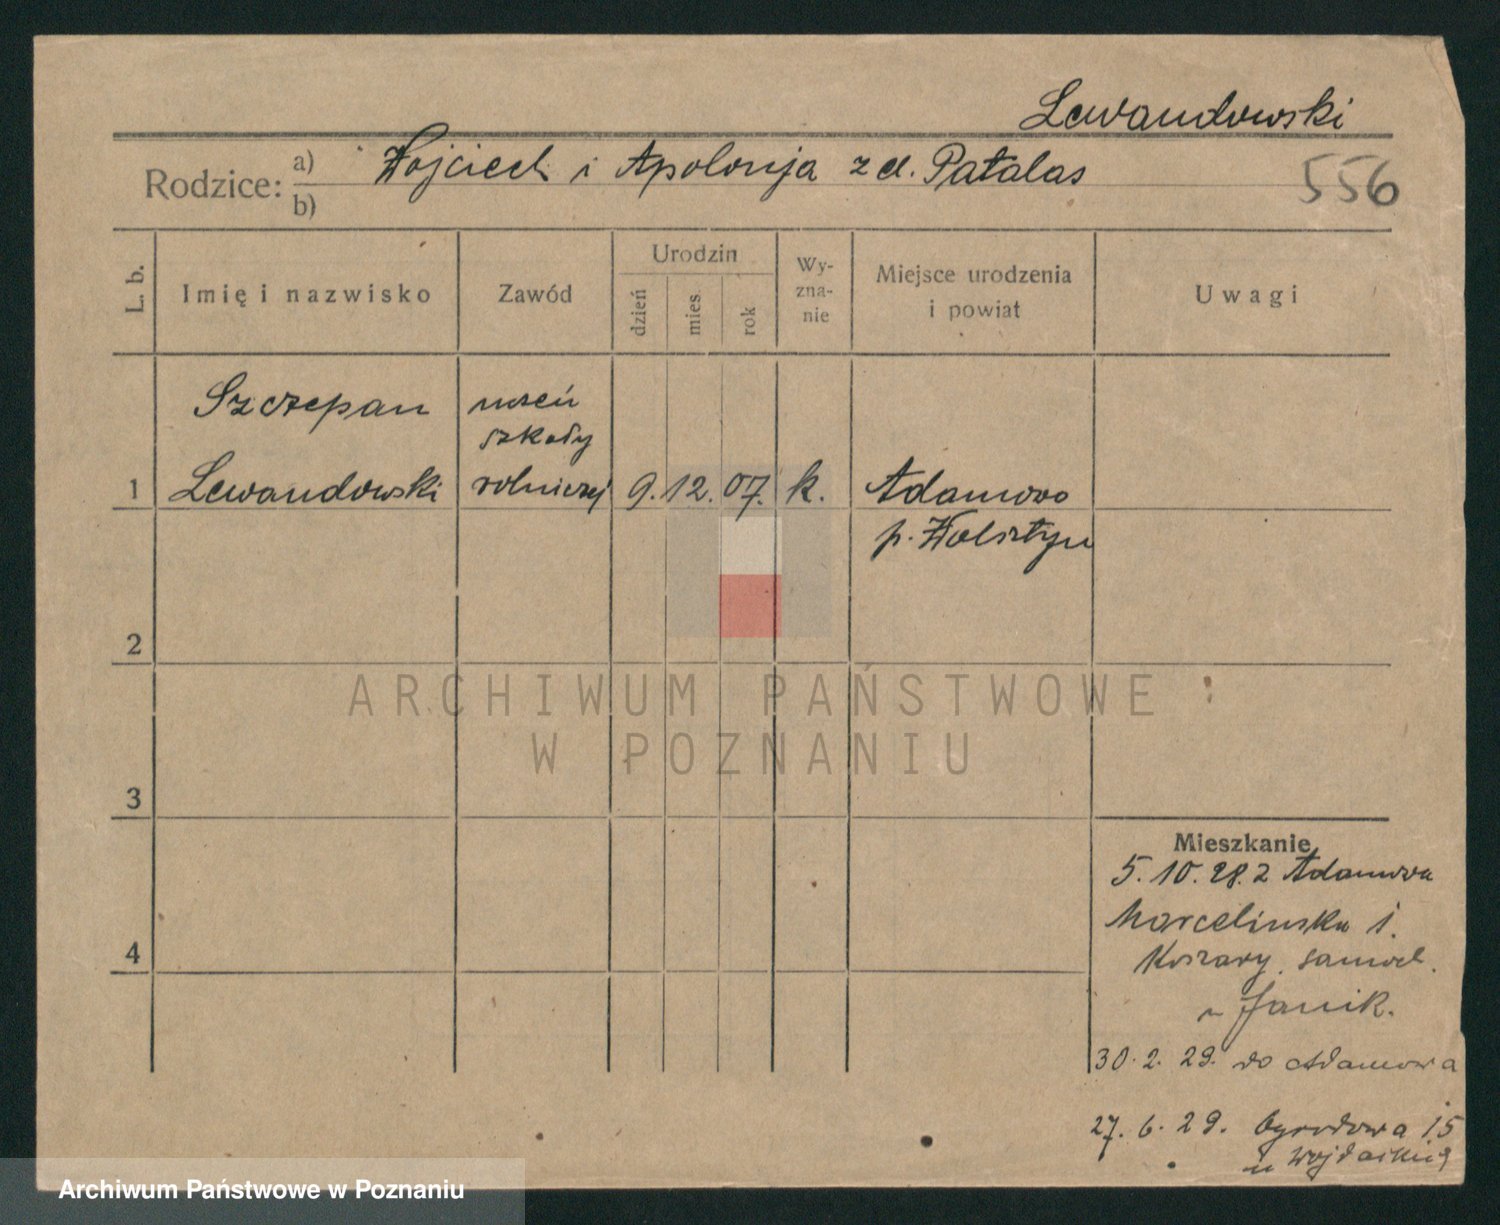 Lewandowski
Rodzice: a) Wojciech i Apolonja z d. Patalas
b)
556
L. b.
Imię i nazwisko
Zawód
Urodzin
dzień
mies.
rok
Wy-
zna-
nie
Miejsce urodzenia
i powiat
Uwagi
Szczepan
Lewandowski
uczeń
szkoły
rolniczej
1
9. 12. 07. k.
Adamowo
p. Wolsztyn
2
3
4
ARCHIWUM PAŃSTWOWE
W POZNANIU
Mieszkanie
5. 10. 28. z Adamowa
Marcelinska 1.
Koszary samoch.
u Janik.
30. 2. 29. do Adamowa
27. 6. 29. Ogrodowa 15
u
Archiwum Państwowe w Poznaniu